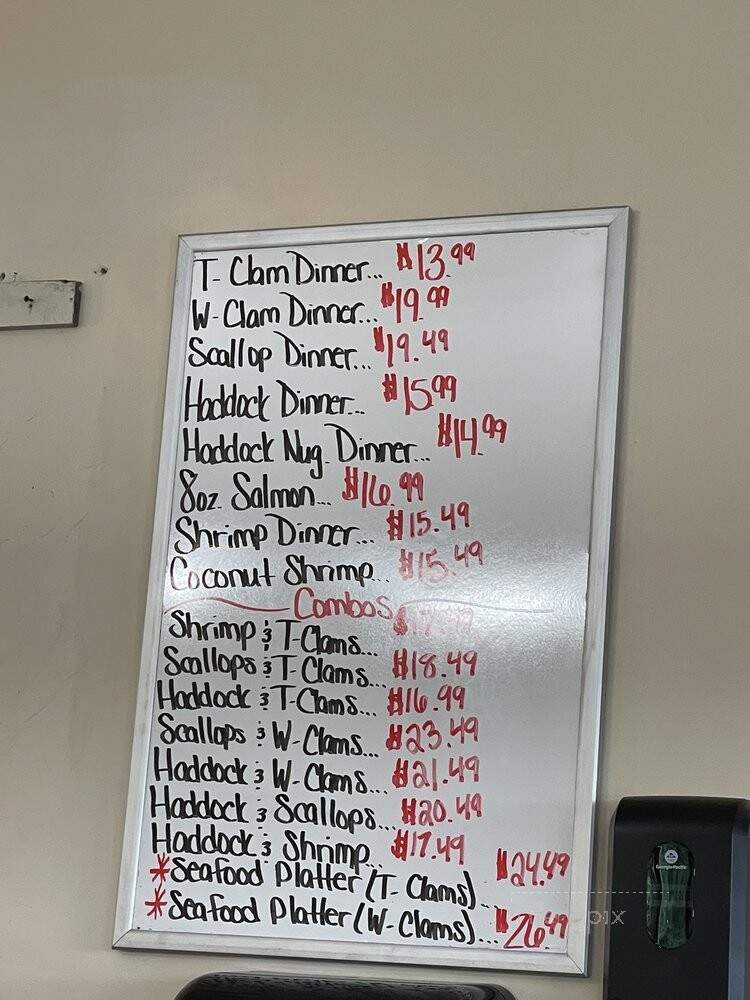 T-Clam Dinner... $13.99
W-Clam Dinner... $19.99
Scallop Dinner... $19.49
Haddock Dinner... $15.99
Haddock Nug. Dinner... $14.99
8oz. Salmon... $16.99
Shrimp Dinner... $15.49
Coconut Shrimp... $15.49
Combos
Shrimp & T-Clams...
Scallops & T-Clams... $18.49
Haddock & T-Clams... $16.99
Scallops & W-Clams... $23.49
Haddock & W-Clams... $21.49
Haddock & Scallops... $20.49
Haddock & Shrimp... $17.49
*Seafood Platter (T-Clams)... $24.49
*Seafood Platter (W-Clams)... $26.49
Georgia-Pacific